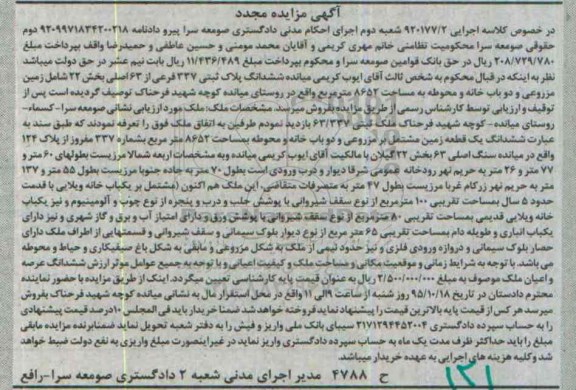 آگهی مزایده مجدد
در خصوص کلاسه اجرایی ۹۲۰۱۷۷/۲ شعبه دوم اجرای احکام مدنی دادگستری صومعه سرا پیرو دادنامه ۹۲۰۹۹۷۱۸۳۴۲۰۰۲۱۸ دوم
حقوقی صومعه سرا محکومیت تقلامتی خانم مهری کریمی و آقایان محمد مومنی و حسین عاطفی و حمیدرضا واقف بپرداخت مبلغ
۲۰۸/۷۲۹/۷۸۰ ریال در حق بانک قوامین صومعه سرا و محکوم بپرداخت مبلغ ۱۱/۴۳۶/۴۸۹ ریال بابت نیم عشر در حق دولت میباشد
نظر به اینکه در قبال محکوم به شخص ثالث آقای ایوب کریمی میانده ششدانگ پلاک ثبتی ۳۳۷ فرعی از ۶۳ اصلی بخش ۲۲ شامل زمین
مزروعی و دو باب خانه و محوطه به مساحت ۸۶۵۲ مترمربع واقع در روستای میانده کوچه شهید فرحناک توصیف گردیده است پس از
توقیف و ارزیابی توسط کارشناس رسمی از طریق مزایده بفروش میرسد. مشخصات ملک: ملک مورد ارزیابی نشانی صومعه سرا - کسماء-
روستای میانده - کوچه شهید فرحناک ملک ثبتی ۶۳/۳۳۷ بازدید نمودم طرفین به اتفاق ملک فوق را تعرفه نمودند که طبق سند به
عبارت ششدانگ یک قطعه زمین مشتمل بر مزروعی و دو باب خانه و محوطه بمساحت ۸۶۵۲ متر مربع بشماره ۳۳۷ مفروز از پلاک ۱۲۴
واقع در میانده سنگ اصلی ۶۳ بخش ۲۲ گیلان با مالکیت آقای ایوب کریمی میانده وبه مشخصات اربعه شمالا مرزیست بطولهای ۶۰ متر و
۷۷ متر و ۲۶ متر به حریم نهر رودخانه عمومی شرقا دیوار و درب ورودی است بطول ۷۰ متر به جاده جنوبا مرزیست بطول ۵۵ متر و ۱۳۷
متر به حریم نهر زرکام غربا مرزیست بطول ۴۷ متر به متصرفات متقاضی، این ملک هم اکنون (مشتمل بر یکباب خانه ویلایی با قدمت
حدود ۵ سال بمساحت تقریبی ۱۰۰ مترمربع از نوع سقف شیروانی با پوشش حلب و درب و پنجره از نوع چوب و آلومینیوم و نیز یکباب
خانه ویلایی قدیمی بمساحت تقریبی ۸۰ مترمربع از نوع سقف شیروانی با پوشش ورق و دارای امتیاز آب و برق و گاز شهری و نیز دارای
یکباب انباری و طویله دام بمساحت تقریبی ۶۵ متر مربع از نوع دیوار بلوک سیمانی و سقف شیروانی و قسمتهایی از اطراف ملک دارای
حصار بلوک سیمانی و دروازه ورودی فلزی و نیز حدود نیمی از ملک به شکل مزروعی و مابقی به شکل باغ صیفیکاری و حیاط و محوطه
می باشد. با توجه به شرایط زمانی و موقعیت مکانی و مساحت ملک و کیفیت اعیانی و با توجه به جمیع عوامل موثر ارزش ششدانگ عرصه
و اعیان ملک موصوف به مبلغ ۲/۵۰۰/۰۰۰/۰۰۰ ریال به عنوان قیمت پایه کارشناسی تعیین میگردد. اینک از طریق مزایده با حضور نماینده
محترم دادستان در تاریخ ۹۵/۱۰/۱۸ روز شنبه از ساعت ۹ الی ۱۱ واقع در محل استقرار مال به نشانی میانده کوچه شهید فرحناک بفروش
میرسد هر کس از قیمت پایه بالاترین قیمت را پیشنهاد نماید فروخته خواهد شد ضمنا خریدار باید فی المجلس ۱۰درصد قیمت پیشنهادی
را به حساب سپرده دادگستری ۲۱۷۱۲۹۴۴۵۲۰۰۴ سیبای بانک ملی واریز و فیش را به دفتر شعبه تحویل نماید ضمنابرنده مزایده مابقی
مبلغ را باید حداکثر ظرف مدت یک ماه به حساب سپرده دادگستری واریز نماید در غیراینصورت مبلغ واریزی به نفع دولت ضبط خواهد
شد وکلیه هزینه های اجرایی به عهده خریدار میباشد.
ح ۴۷۸۸ مدیر اجرای مدنی شعبه ۲ دادگستری صومعه سرا-رافع
۱۳۱